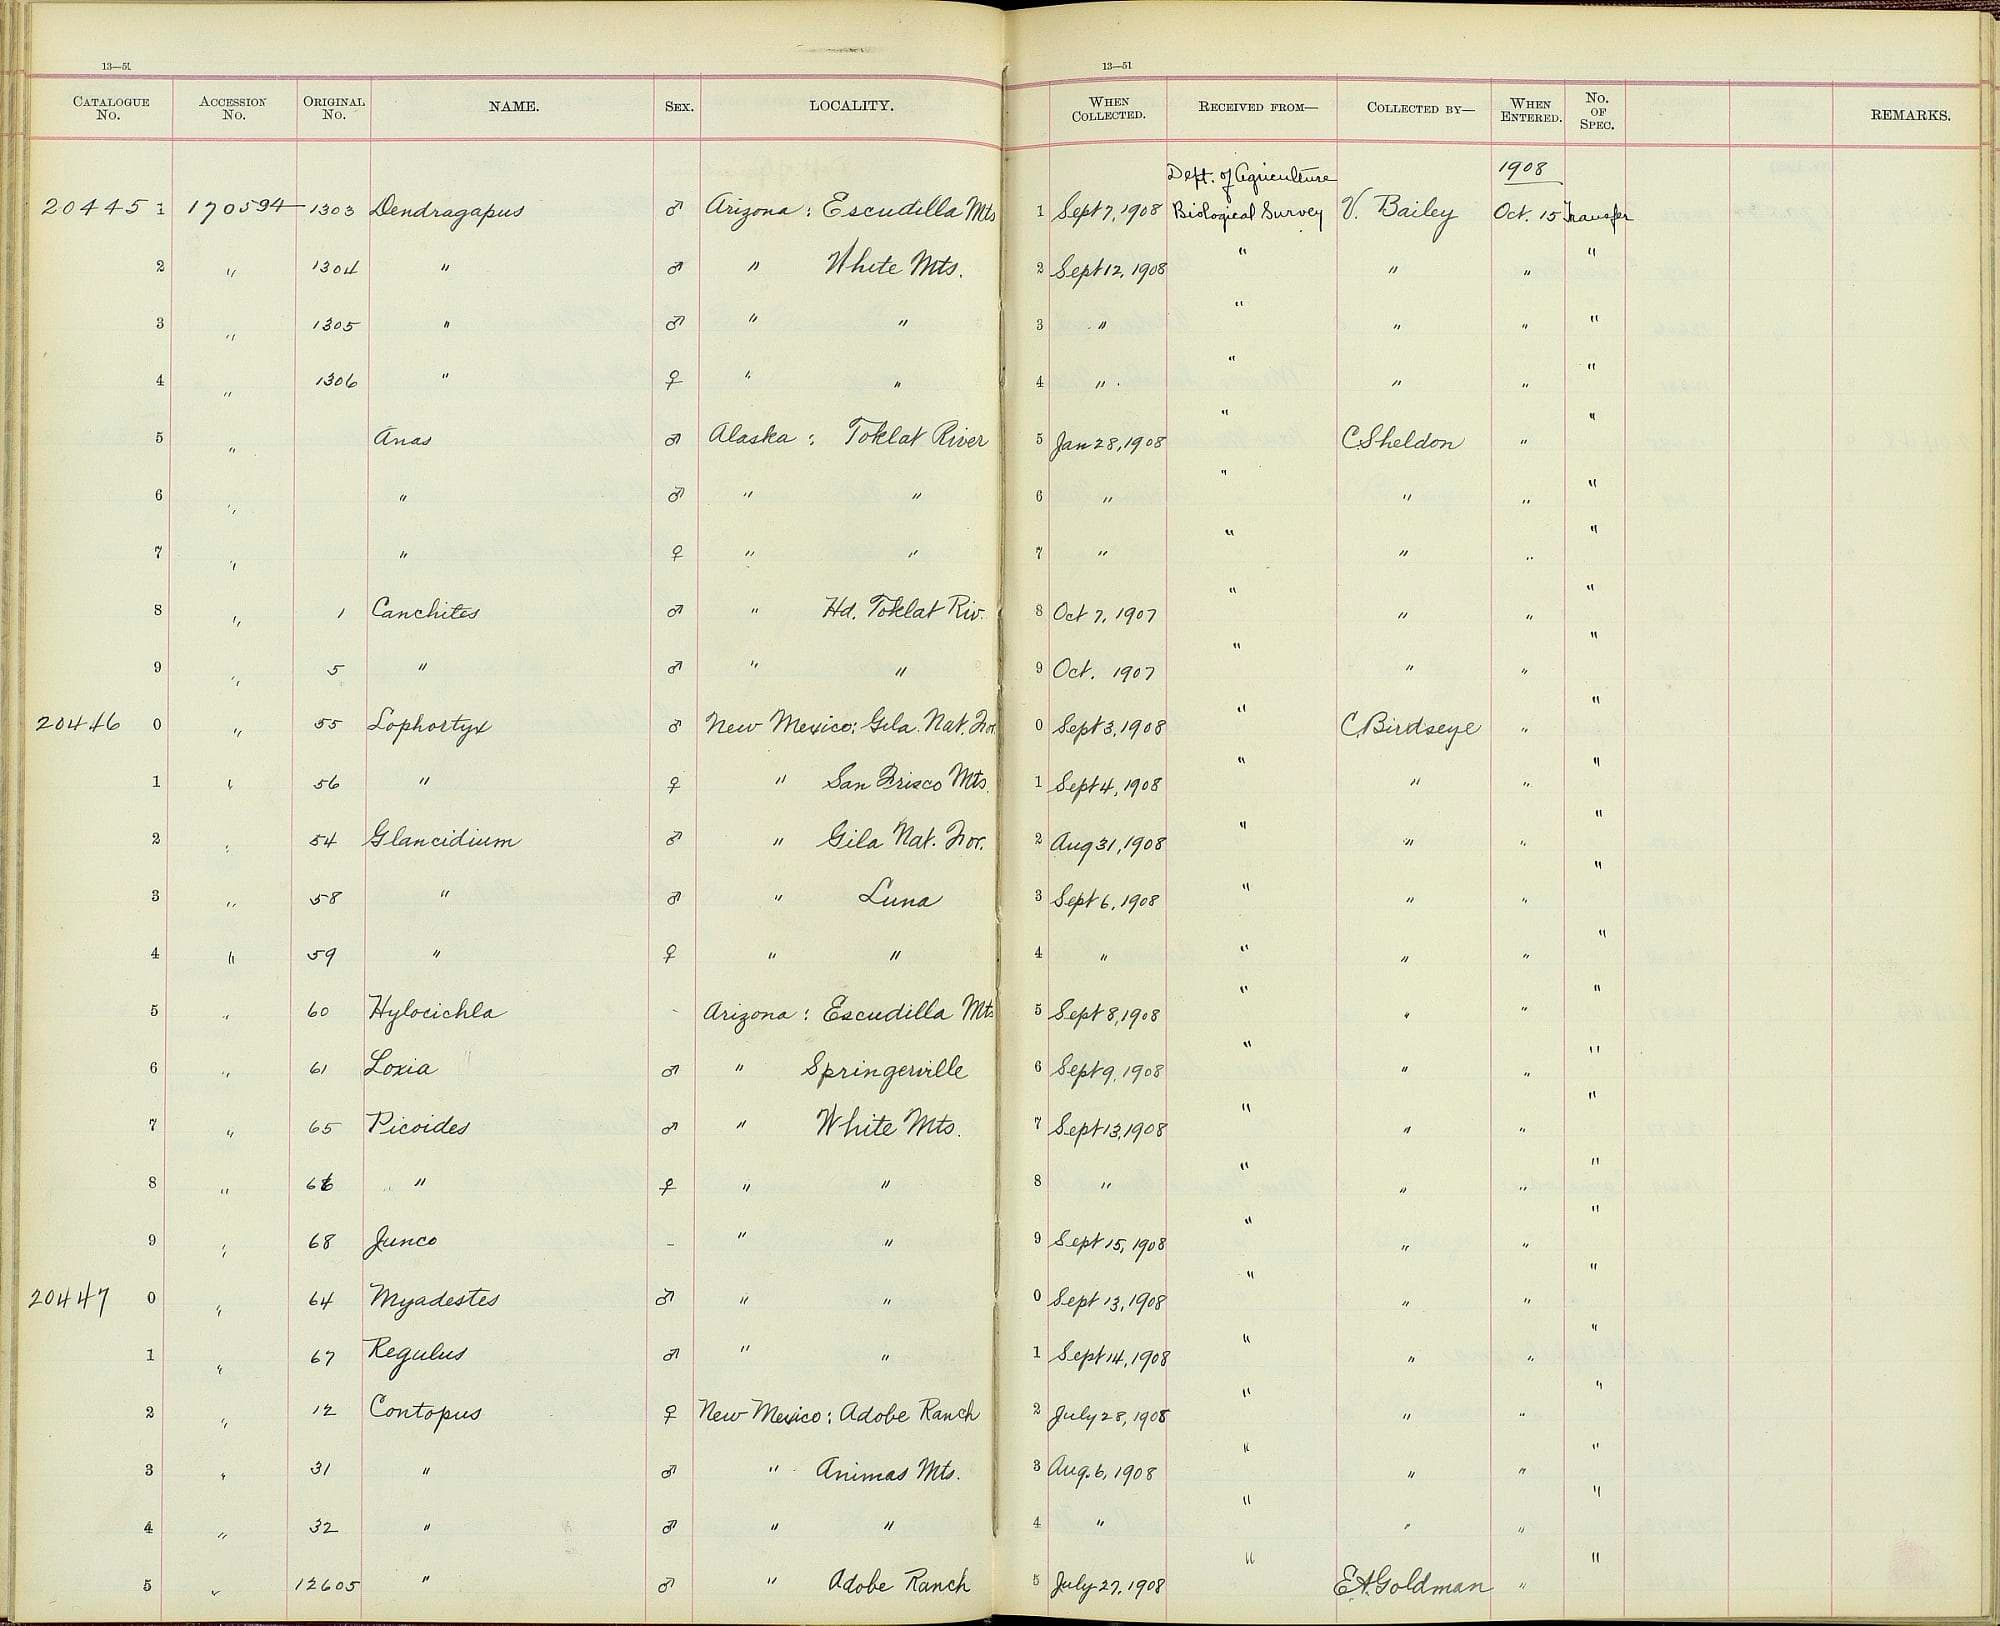 13—51
CATALOGUE No. ACCESSION No. ORIGINAL No. NAME. SEX. LOCALITY.
20445 1 170594 1303 Dendragapus ♂ Arizona: Escudilla Mts
2 " 1304 " ♂ " White Mts.
3 " 1305 " ♂ " "
4 " 1306 " ♀ " "
5 " Anas ♂ Alaska: Toklat River
6 " " ♂ " "
7 " " ♀ " "
8 " 1 Canchites ♂ " Hd. Toklat Riv.
9 " 5 " ♂ " "
20446 0 " 55 Lophortyx ♂ New Mexico: Gila. Nat. For.
1 " 56 " ♀ " San Frisco Mts.
2 " 54 Glancidium ♂ " Gila Nat. For.
3 " 58 " ♂ " Luna
4 " 59 " ♀ " "
5 " 60 Hylocichla - Arizona: Escudilla Mts
6 " 61 Loxia ♂ " Springerville
7 " 65 Picoides ♂ " White Mts.
8 " 66 " ♀ " "
9 " 68 Junco - " "
20447 0 " 64 Myadestes ♂ " "
1 " 67 Regulus ♂ " "
2 " 12 Contopus ♀ New Mexico: Adobe Ranch
3 " 31 " ♂ " Animas Mts.
4 " 32 " ♂ " "
5 " 12605 " ♂ " Adobe Ranch
13—51
WHEN COLLECTED. RECEIVED FROM— COLLECTED BY— WHEN ENTERED. No. OF SPEC. REMARKS.
Dept. of Agriculture 1908
1 Sept 7, 1908 Biological Survey V. Bailey Oct. 15 Transfer
2 Sept 12, 1908 " " " "
3 " " " " "
4 " " " " "
5 Jan 28, 1908 " C Sheldon " "
6 " " " " "
7 " " " " "
8 Oct 7, 1907 " " " "
9 Oct. 1907 " " " "
0 Sept 3, 1908 " C. Birdseye " "
1 Sept 4, 1908 " " " "
2 Aug 31, 1908 " " " "
3 Sept 6, 1908 " " " "
4 " " " " "
5 Sept 8, 1908 " " " "
6 Sept 9, 1908 " " " "
7 Sept 13, 1908 " " " "
8 " " " " "
9 Sept 15, 1908 " " " "
0 Sept 13, 1908 " " " "
1 Sept 14, 1908 " " " "
2 July 28, 1908 " " " "
3 Aug. 6, 1908 " " " "
4 " " " " "
5 July 27, 1908 " E.A. Goldman " "